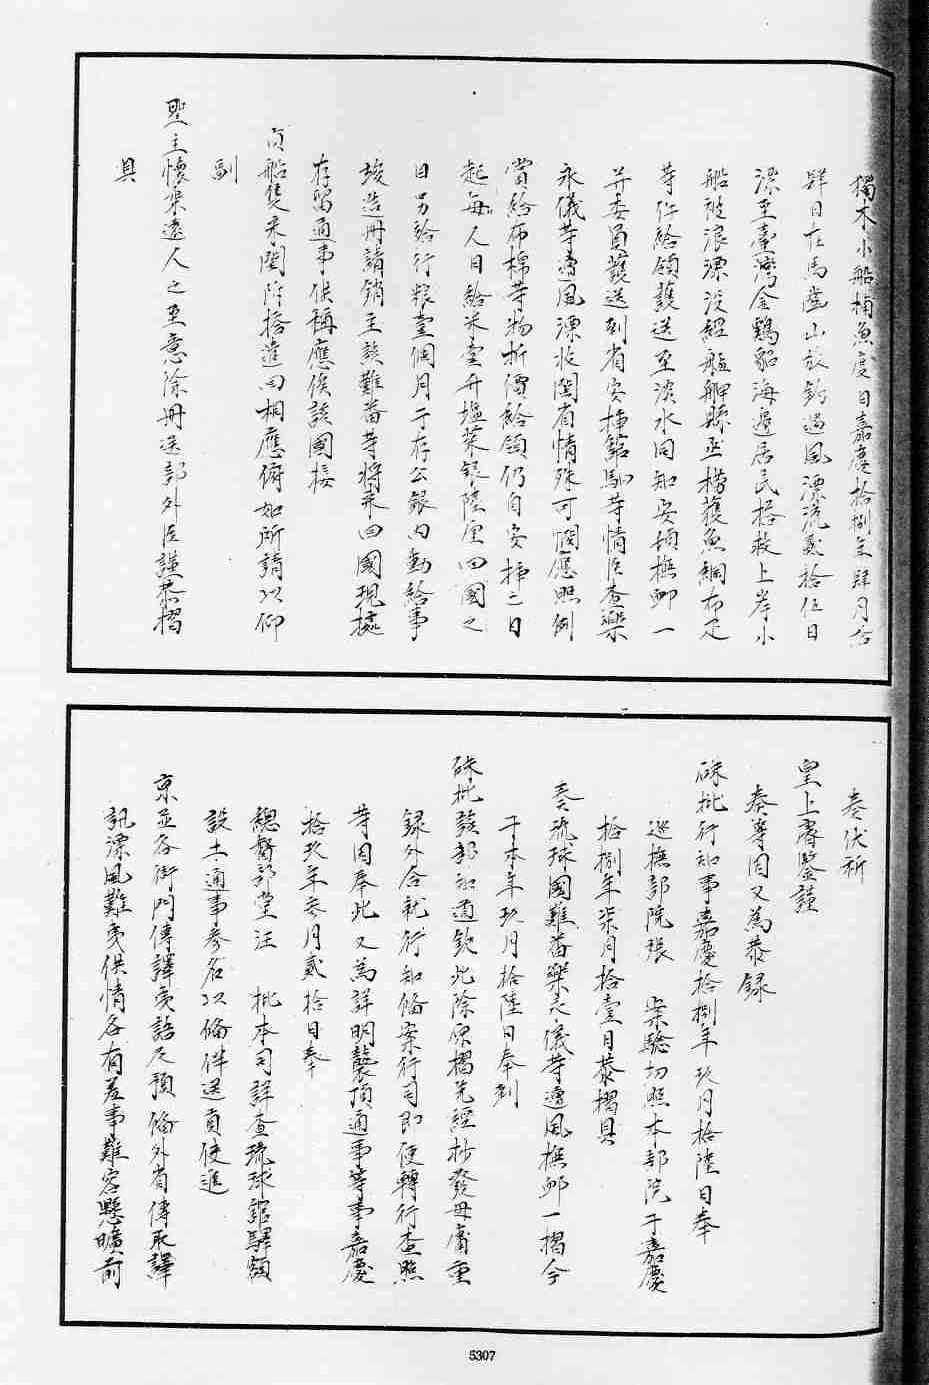 獨木小船捕魚度日嘉慶拾捌年肆月初
肆日在馬齒山放釣遇風漂流貳拾伍日
漂至臺灣金雞貂海邊居民搭救上岸小
船被浪漂沒經艋舺縣丞撈獲魚網布疋
等件給領護送至淡水同知安頓撫卹一
并委員護送到省安揷舘馹等情臣查樂
永儀等遭風漂收閩省情殊可憫應照例
賞給布棉等物折價給領仍自安揷之日
起每人日給米壹升塩菜銀陸厘回國之
日另給行粮壹個月于存公銀內動給事
竣造冊請銷至該難番等將來回國現據
存留通事供稱應俟該國接
貢船隻來閩附搭進回相應俯如所請以仰
副
聖主懷柔遠人之至意除冊送部外臣謹恭摺
具
奏伏祈
皇上睿鑒謹
奏等因又為恭錄
硃批行知事嘉慶拾捌年玖月拾陸日奉
巡撫部院張　案驗切照本部院于嘉慶
拾捌年柒月拾壹日恭摺具
奏琉球國難番樂永儀等遭風撫卹一摺今
于本年玖月拾陸日奉到
硃批該部知道欽此除原摺先經抄發毋庸重
錄外合就行知備案行司即便轉行查照
等因奉此又為詳明襲頂通事等事嘉慶
拾玖年叁月貳拾日奉
總督部堂汪　批本司詳查琉球舘驛額
設土通事叁名以備伴送貢使進
京並各衙門傳譯夷語及預備外省傳取譯
訊漂風難夷供情各有差事難容懸曠前
5307